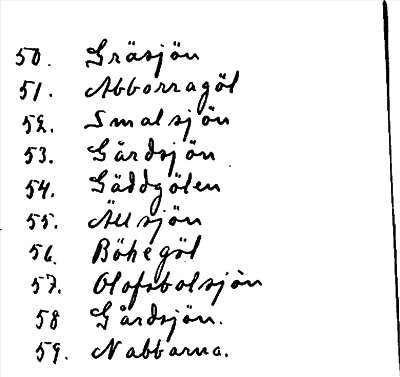 50. Gräsjön
51. Abborragöl
52. Smalsjön
53. Gårdsjön
54. Gäddgölen
55. Ällsjön
56. Böhegöl
57. Olofsbolsjön
58 Gårdsjön.
59. Nabbarna.